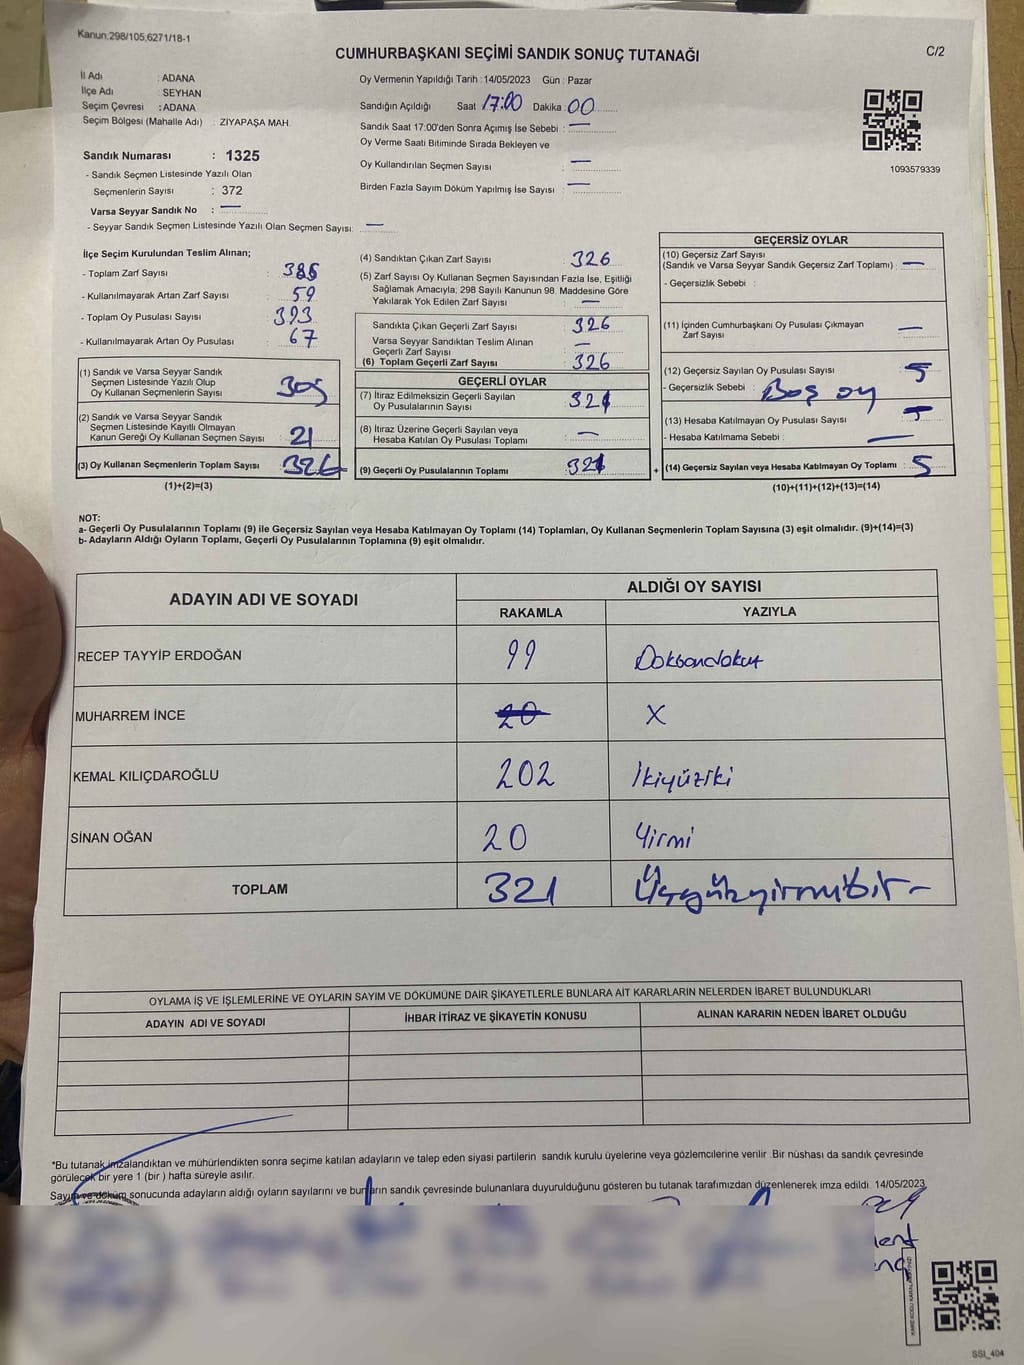 Kanun:298/105,6271/18-1
CUMHURBAŞKANI SEÇİMİ SANDIK SONUÇ TUTANAĞI
C/2
İl Adı : ADANA
İlçe Adı : SEYHAN
Seçim Çevresi : ADANA
Seçim Bölgesi (Mahalle Adı) : ZIYAPAŞA MAH.
Oy Vermenin Yapıldığı Tarih : 14/05/2023 Gün : Pazar
Sandığın Açıldığı Saat 17:00 Dakika : 00
Sandık Saat 17:00'den Sonra Açımış İse Sebebi : —
Oy Verme Saati Bitiminde Sırada Bekleyen ve
Oy Kullandırılan Seçmen Sayısı : —
Birden Fazla Sayım Döküm Yapılmış İse Sayısı : —
1093579339
Sandık Numarası : 1325
- Sandık Seçmen Listesinde Yazılı Olan
Seçmenlerin Sayısı : 372
Varsa Seyyar Sandık No : —
- Seyyar Sandık Seçmen Listesinde Yazılı Olan Seçmen Sayısı: —
İlçe Seçim Kurulundan Teslim Alınan;
- Toplam Zarf Sayısı : 385
- Kullanılmayarak Artan Zarf Sayısı : 59
- Toplam Oy Pusulası Sayısı : 393
- Kullanılmayarak Artan Oy Pusulası : 67
(1) Sandık ve Varsa Seyyar Sandık
Seçmen Listesinde Yazılı Olup
Oy Kullanan Seçmenlerin Sayısı : 305
(2) Sandık ve Varsa Seyyar Sandık
Seçmen Listesinde Kayıtlı Olmayan
Kanun Gereği Oy Kullanan Seçmen Sayısı : 21
(3) Oy Kullanan Seçmenlerin Toplam Sayısı : 326
(1)+(2)=(3)
(4) Sandıktan Çıkan Zarf Sayısı : 326
(5) Zarf Sayısı Oy Kullanan Seçmen Sayısından Fazla İse, Eşitliği
Sağlamak Amacıyla; 298 Sayılı Kanunun 98. Maddesine Göre
Yakılarak Yok Edilen Zarf Sayısı : —
Sandıkta Çıkan Geçerli Zarf Sayısı : 326
Varsa Seyyar Sandıktan Teslim Alınan
Geçerli Zarf Sayısı : —
(6) Toplam Geçerli Zarf Sayısı : 326
GEÇERLİ OYLAR
(7) İtiraz Edilmeksizin Geçerli Sayılan
Oy Pusulalarının Sayısı : 321
(8) İtiraz Üzerine Geçerli Sayılan veya
Hesaba Katılan Oy Pusulası Toplamı : —
(9) Geçerli Oy Pusulalarının Toplamı : 321
+
GEÇERSİZ OYLAR
(10) Geçersiz Zarf Sayısı
(Sandık ve Varsa Seyyar Sandık Geçersiz Zarf Toplamı) : —
- Geçersizlik Sebebi :
(11) İçinden Cumhurbaşkanı Oy Pusulası Çıkmayan
Zarf Sayısı : —
(12) Geçersiz Sayılan Oy Pusulası Sayısı : 5
- Geçersizlik Sebebi : Boş oy
(13) Hesaba Katılmayan Oy Pusulası Sayısı :
- Hesaba Katılmama Sebebi : —
(14) Geçersiz Sayılan veya Hesaba Katılmayan Oy Toplamı : 5
(10)+(11)+(12)+(13)=(14)
NOT:
a- Geçerli Oy Pusulalarının Toplamı (9) ile Geçersiz Sayılan veya Hesaba Katılmayan Oy Toplamı (14) Toplamları, Oy Kullanan Seçmenlerin Toplam Sayısına (3) eşit olmalıdır. (9)+(14)=(3)
b- Adayların Aldığı Oyların Toplamı, Geçerli Oy Pusulalarının Toplamına (9) eşit olmalıdır.
ADAYIN ADI VE SOYADI
ALDIĞI OY SAYISI
RAKAMLA YAZIYLA
RECEP TAYYİP ERDOĞAN 99 Doksandokuz
MUHARREM İNCE 20 X
KEMAL KILIÇDAROĞLU 202 İkiyüziki
SİNAN OĞAN 20 Yirmi
TOPLAM 321 Üçyüzyirmibir–
OYLAMA İŞ VE İŞLEMLERİNE VE OYLARIN SAYIM VE DÖKÜMÜNE DAİR ŞİKAYETLERLE BUNLARA AİT KARARLARIN NELERDEN İBARET BULUNDUKLARI
ADAYIN ADI VE SOYADI İHBAR İTİRAZ VE ŞİKAYETİN KONUSU ALINAN KARARIN NEDEN İBARET OLDUĞU
*Bu tutanak imzalandıktan ve mühürlendikten sonra seçime katılan adayların ve talep eden siyasi partilerin sandık kurulu üyelerine veya gözlemcilerine verilir .Bir nüshası da sandık çevresinde
görülecek bir yere 1 (bir ) hafta süreyle asılır.
Sayım ve döküm sonucunda adayların aldığı oyların sayılarını ve bunların sandık çevresinde bulunanlara duyurulduğunu gösteren bu tutanak tarafımızdan düzenlenerek imza edildi. 14/05/2023
SSI_404